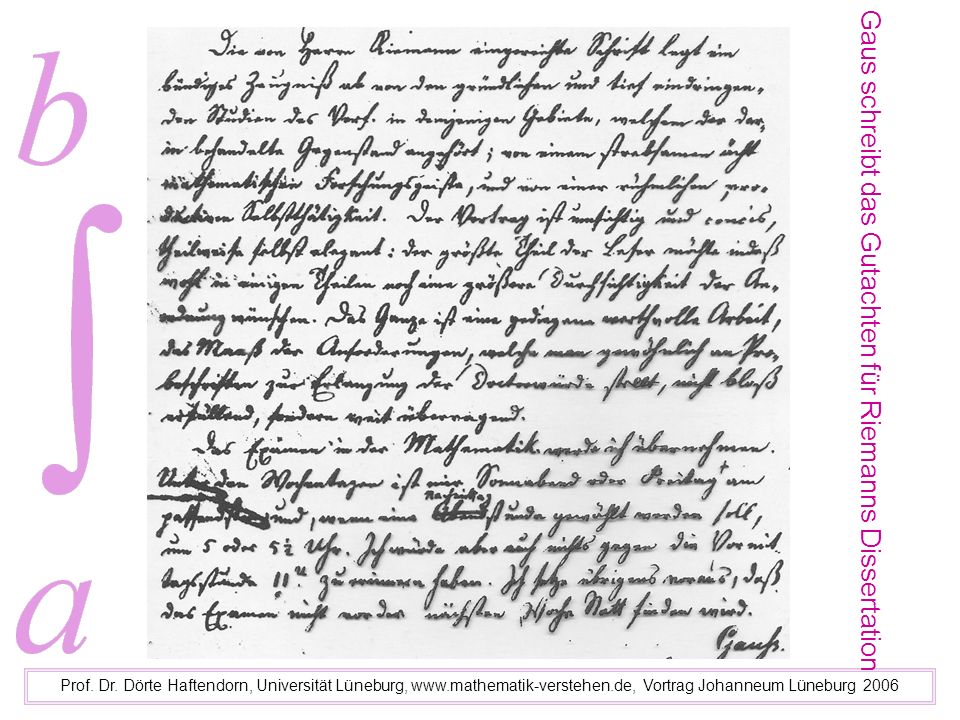 b
∫
a
Die von Herrn Riemann eingereichte Schrift legt ein
bündiges Zeugniß ab von den gründlichen und tief eindringen-
den Studien des Verf. in demjenigen Gebiete, welchem der dar-
in behandelte Gegenstand angehört; von einem strebsamen ächt
mathematischen Forschungsgeiste, und von einer rühmlichen pro-
ductiven Selbstthätigkeit. Der Vortrag ist umsichtig und concis,
theilweise selbst elegant: der größte Theil der Leser möchte indeß
wohl in einigen Theilen noch eine größere Durchsichtigkeit der An-
ordnung wünschen. Das Ganze ist eine gediegene werthvolle Arbeit,
das Maaß der Anforderungen, welche man gewöhnlich an Pro-
beschriften zur Erlangung der Doctorwürde stellt, nicht bloß
erfüllend, sondern weit überragend.
Das Examen in der Mathematik werde ich übernehmen.
Unter den Wochentagen ist mir Sonnabend oder Freitag am
passendsten und, wenn eine Nachmittagsstunde gewählt werden soll,
um 5 oder 5½ Uhr. Ich würde aber auch nichts gegen die Vormit
tagsstunde 11 u. zu erinnern haben. Ich setze übrigens voraus, daß
das Examen nicht vor der nächsten Woche Statt finden wird.
Gauß.
Gaus schreibt das Gutachten für Riemanns Dissertation
Prof. Dr. Dörte Haftendorn, Universität Lüneburg, www.mathematik-verstehen.de, Vortrag Johanneum Lüneburg 2006